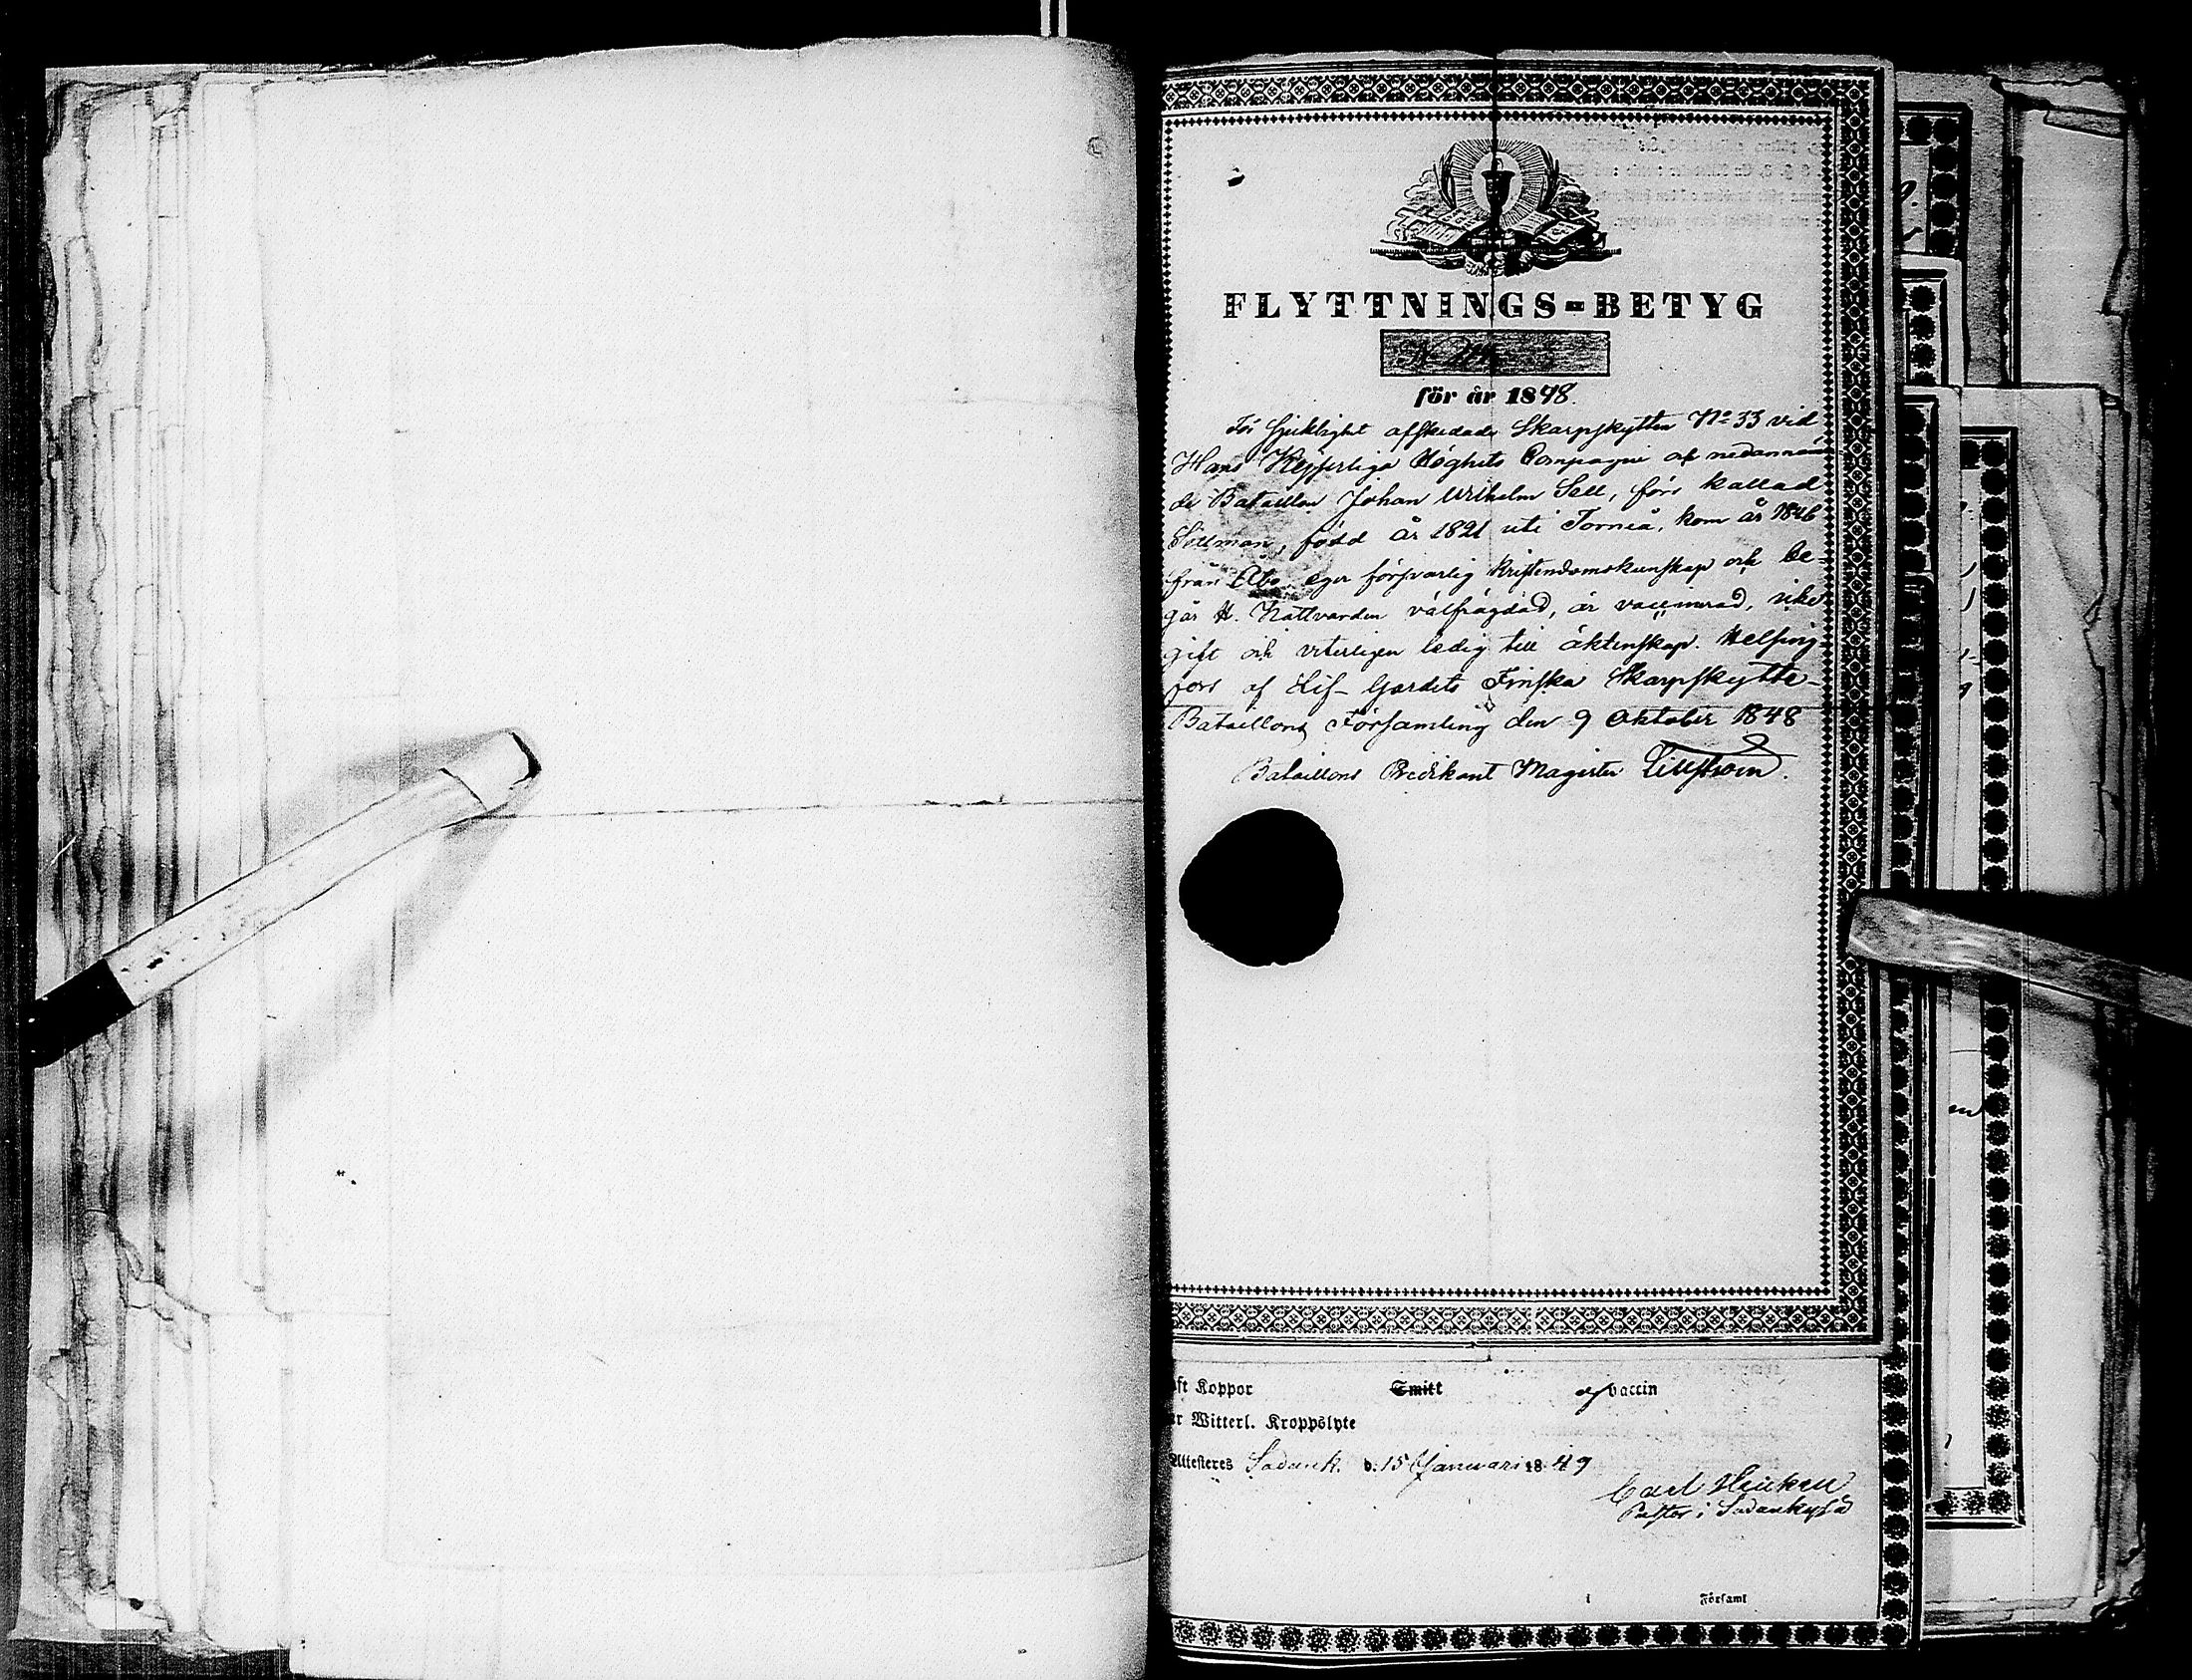 FLYTTNINGS-BETYG
för år 1848.
För sjuklighet afskedade Skarpskytten No 33 vid
Hans Kejserliga Höghets Compagnie och nedannämn
de Bataillon Johan Wilhelm Sell, förr kallad
Sellman, född år 1821 uti Torneå, kom år 1846
från Åbo, eger försvarlig kristendomskunskap och be-
går H. Nattvarden välfrägdad, är vaccinerad, icke
gift och veterligen ledig till äktenskap. Helsing-
fors af Lif-Gardets Finska Skarpskytte-
Bataillons Församling den 9 Oktober 1848
Bataillons Predikant Magister Lillström.
ft Koppor Smitt af vaccin
r Witterl. Kroppslyte
Attesteres Sodank. d. 15 Januari 1849
Carl Heickell
Pastor i Sodankylä
i Församl